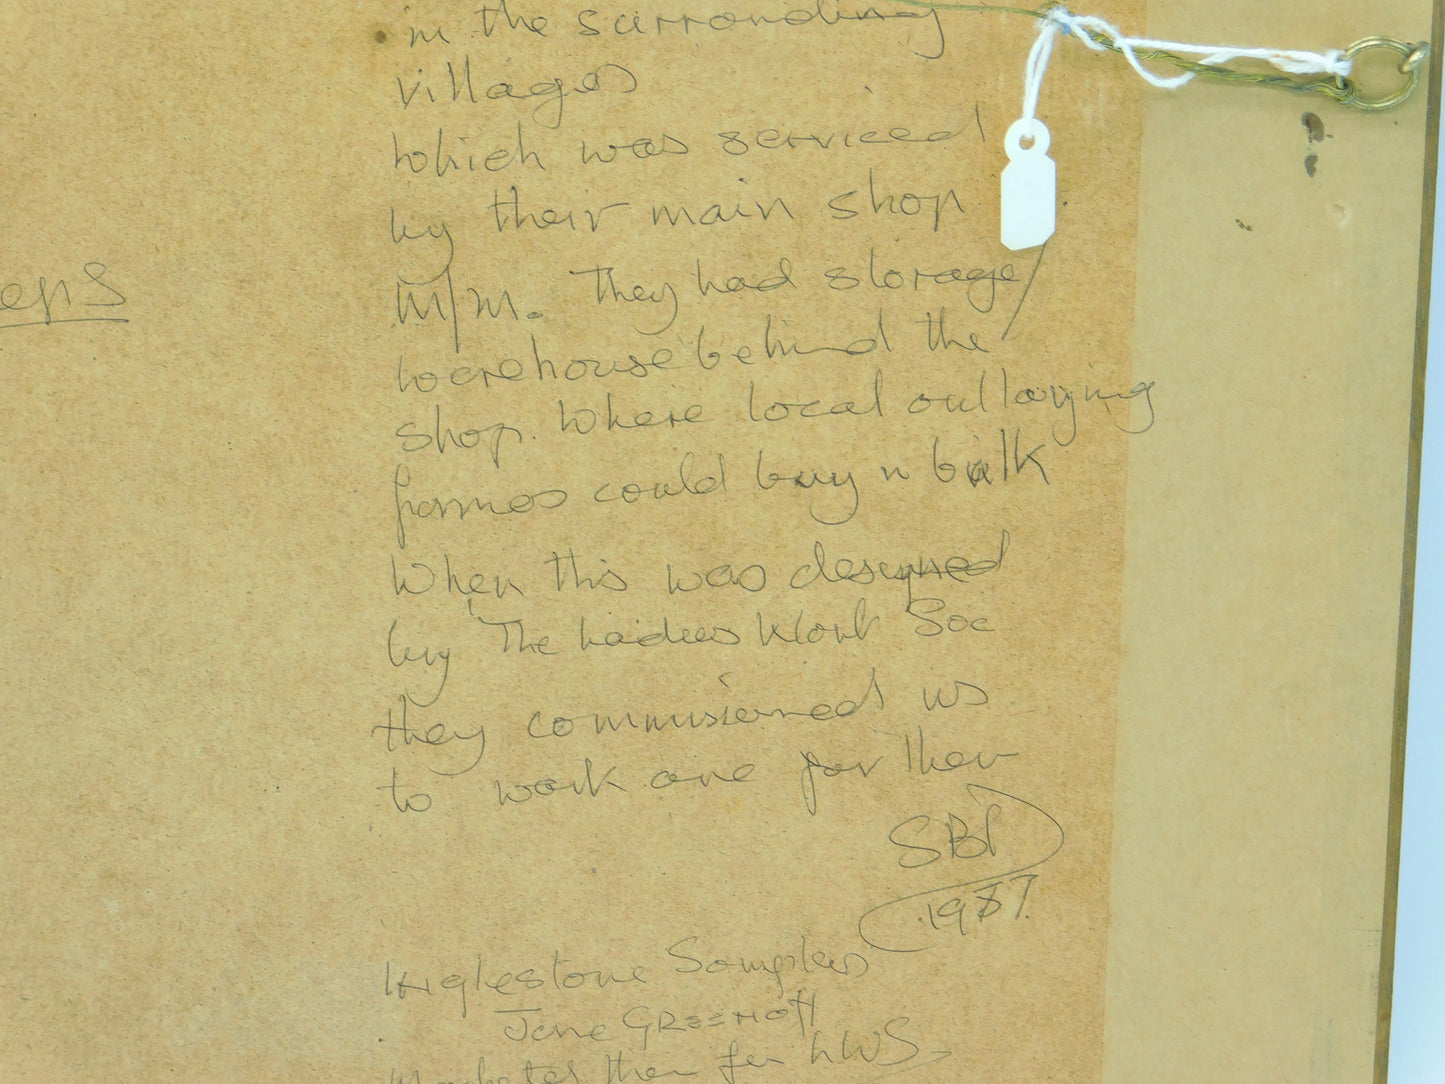 in the surronding
villages
which was serviced
by their main shop
M/M. They had storage/
warehouse behind the
shop. Where local outlaying
farmes could buy n bulk
When this was designed
by The Ladies Work Soc
they commisioned us
to work one for them
SBP
1987.
Inglestone Samplers
Jane GREENOFF
Marketed them for LWS.